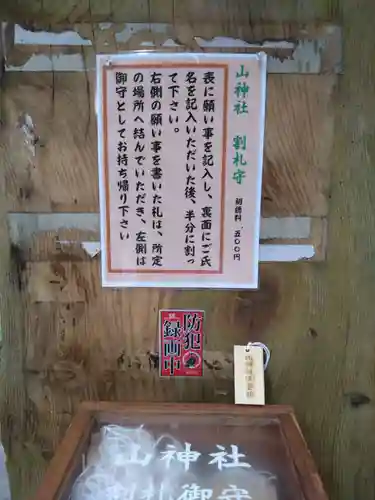 山神社 割札守
初穂料 五〇〇円
表に願い事を記入し、裏面にご氏
名を記入いただいた後、半分に割っ
て下さい。
右側の願い事を書いた札は、所定
の場所へ結んでいただき、左側は
御守としてお持ち帰り下さい
防犯
録画中
山神社
割札御守